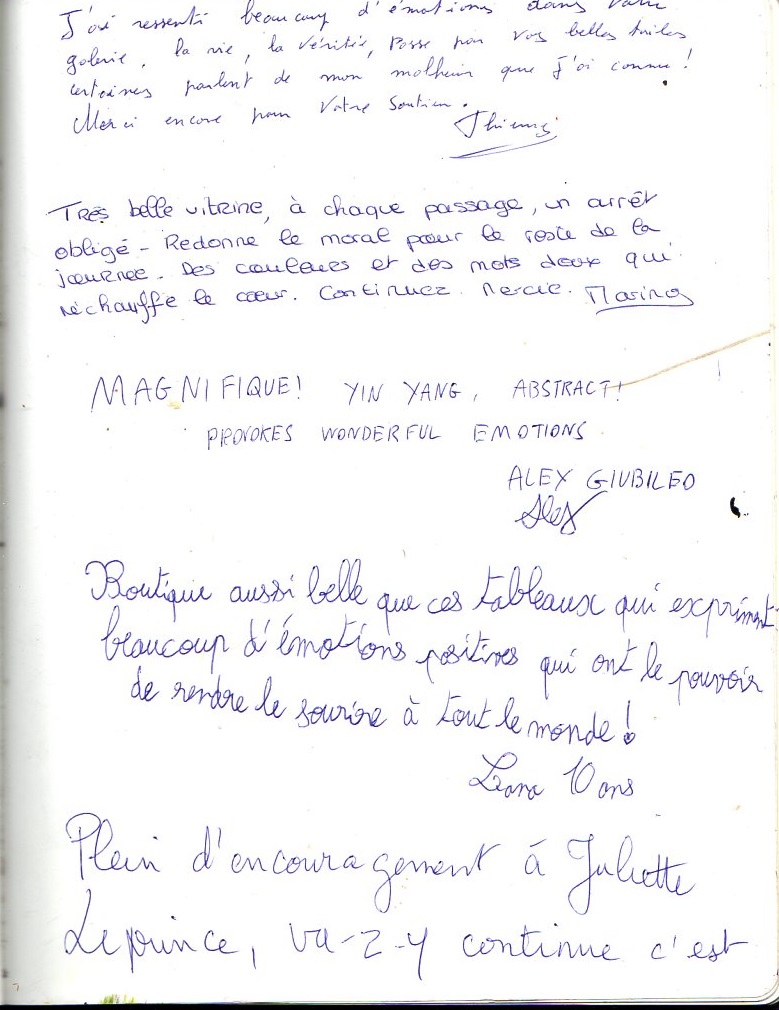 J'ai ressenti beaucoup d'émotions dans votre
galerie, la vie, la vérité, Passe par vos belles toiles
certaines parlent de mon malheur que J'ai connu !
Merci encore pour Votre Soutien.
Thierry
Très belle vitrine, à chaque passage, un arrêt
obligé - Redonne le moral pour le reste de la
journée. Des couleurs et des mots doux qui
réchauffe le cœur. Continuez. Mercie. Marina
MAGNIFIQUE! YIN YANG, ABSTRACT!
PROVOKES WONDERFUL EMOTIONS
ALEX GIUBILEO
Alex
Boutique aussi belle que ces tableaux qui expriment
beaucoup d'émotions positives qui ont le pouvoir
de rendre le sourire à tout le monde !
10 ans
Plein d'encouragement à Juliette
Leprince, va-z-y continue c'est